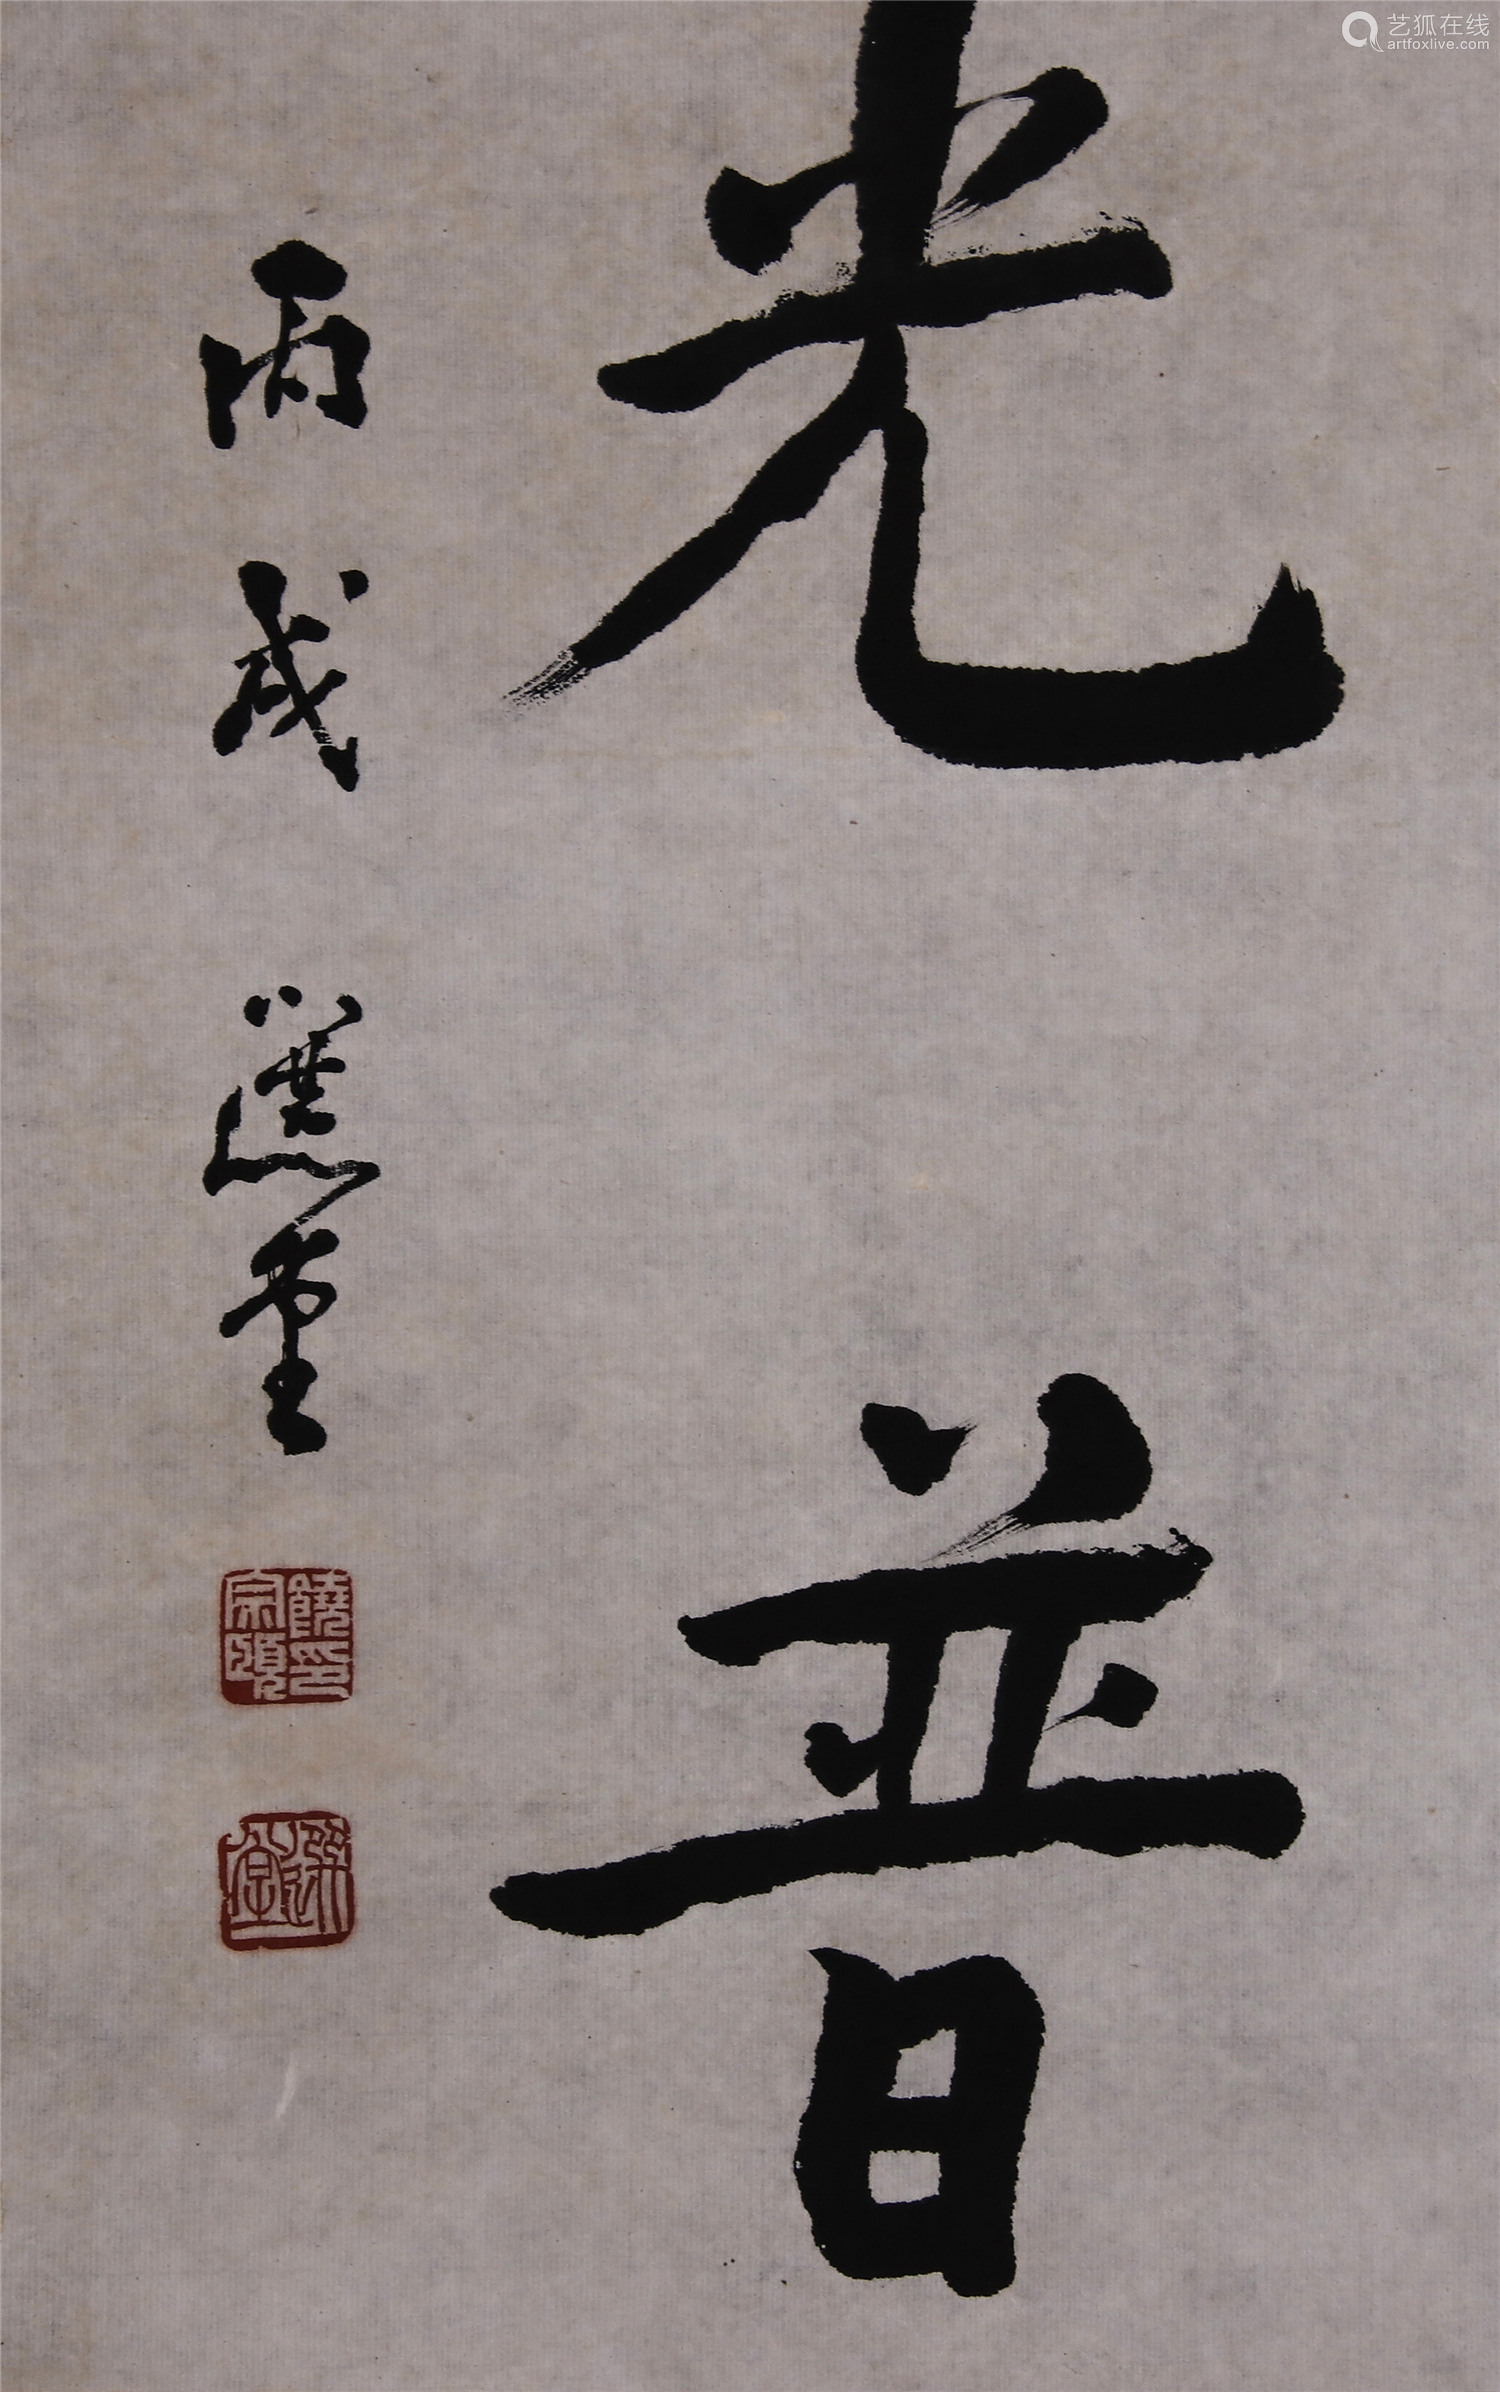 艺狐在线
artfoxlive.com
光普
丙戌 選堂
饒宗頤印
選堂